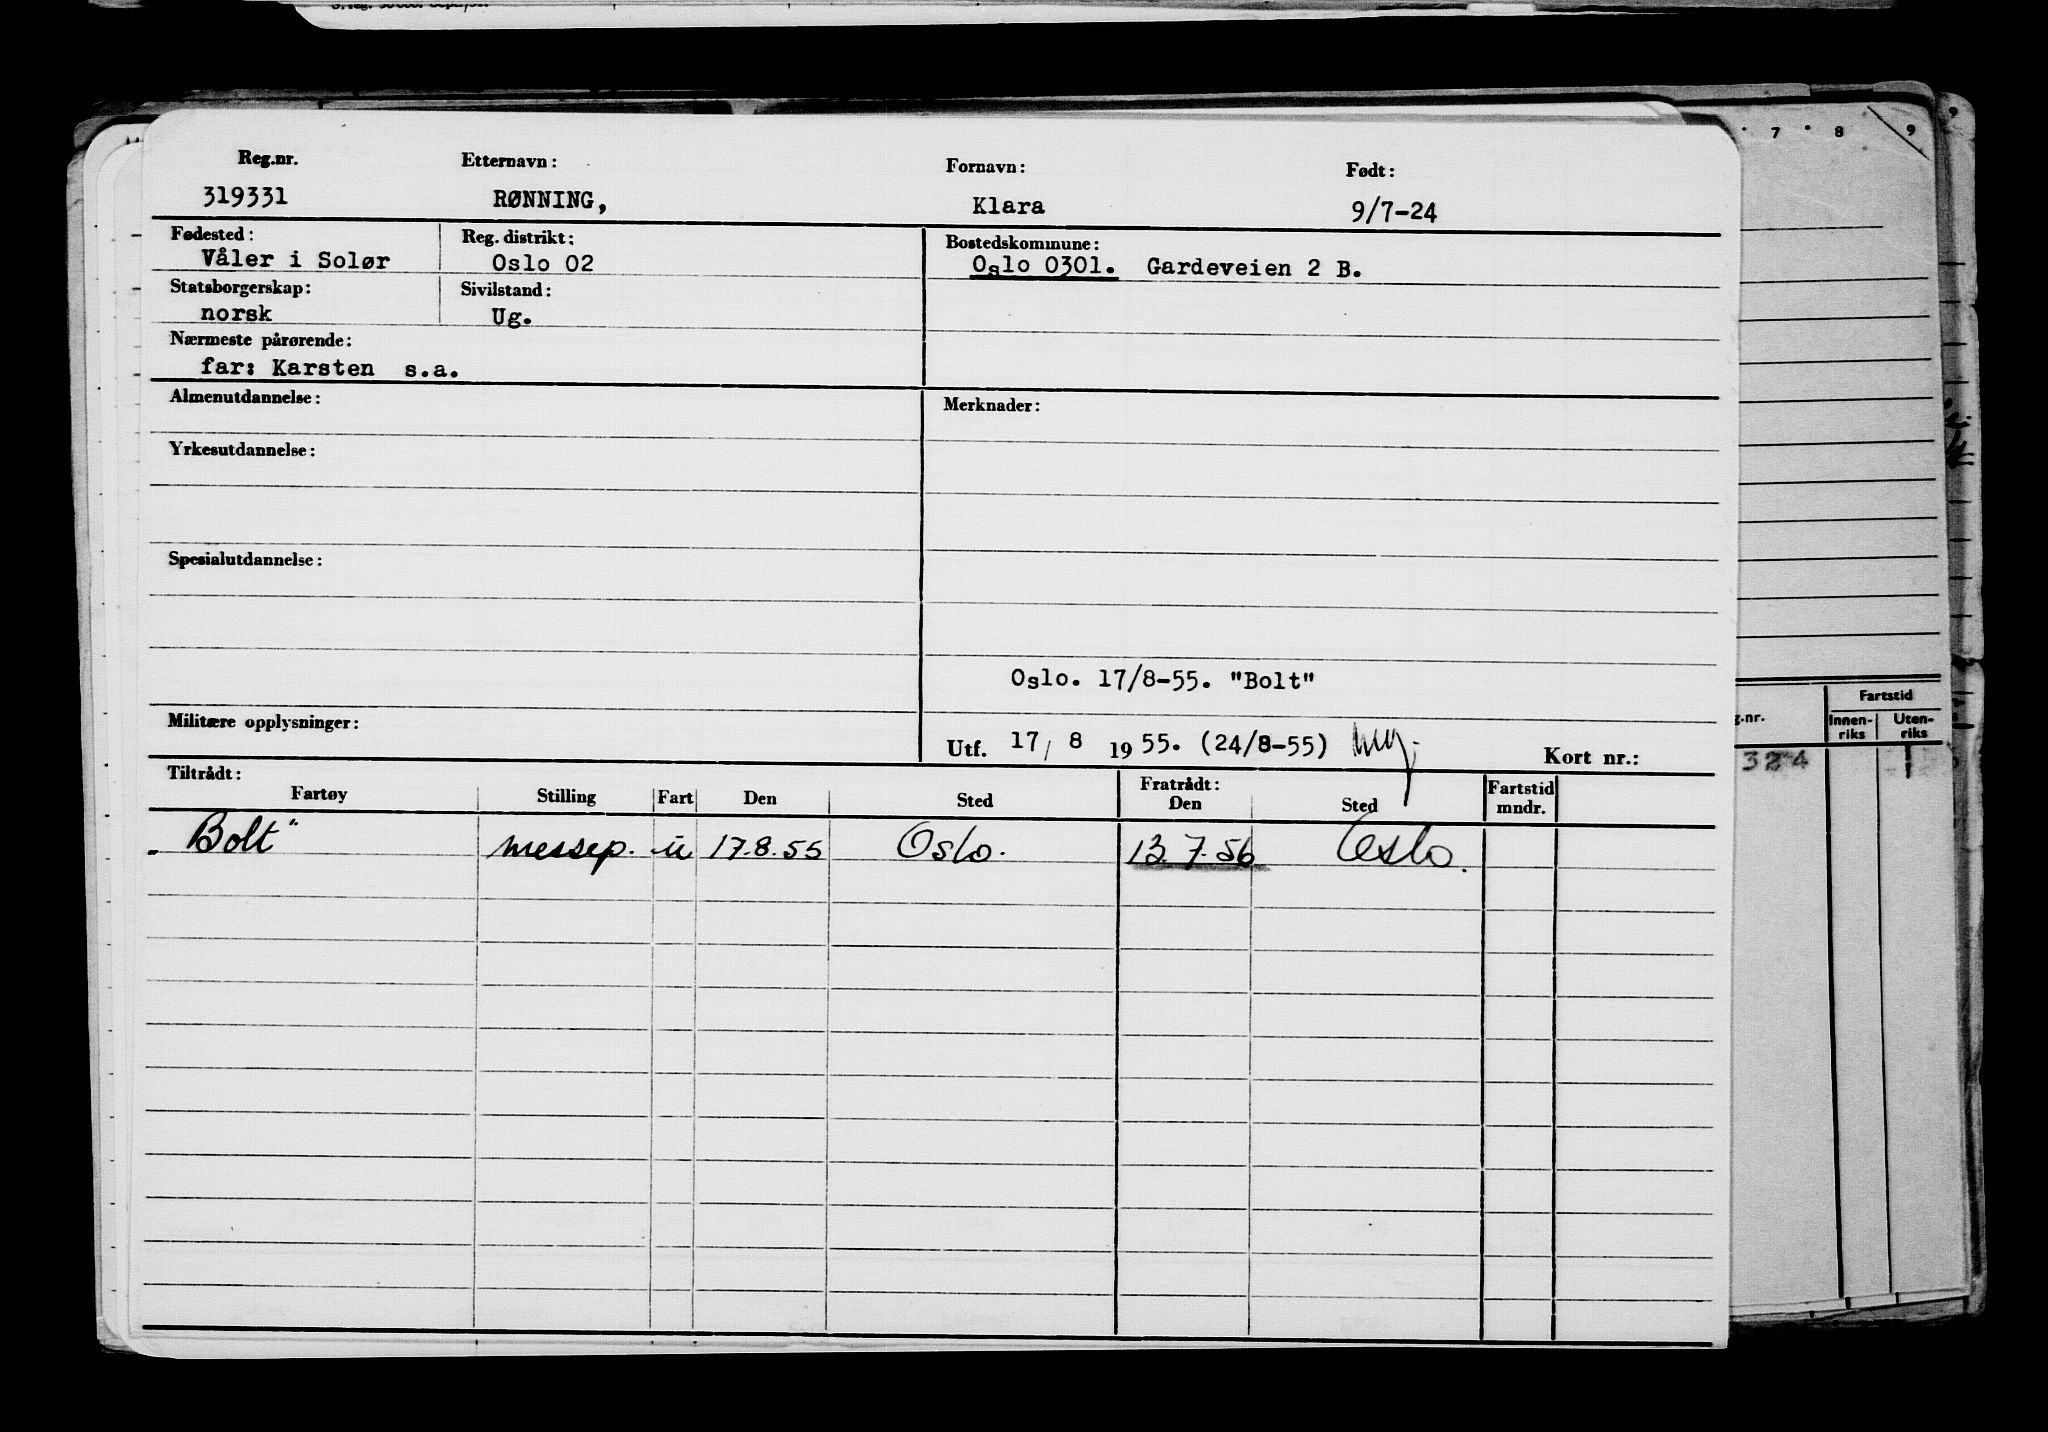 Reg.nr. Etternavn: Fornavn: Født:
319331 RØNNING, Klara 9/7-24
Fødested: Reg. distrikt: Bostedskommune:
Våler i Solør Oslo 02 Oslo 0301. Gardeveien 2 B.
Statsborgerskap: Sivilstand:
norsk Ug.
Nærmeste pårørende:
far: Karsten s.a.
Almenutdannelse: Merknader:
Yrkesutdannelse:
Spesialutdannelse:
Oslo. 17/8-55. "Bolt"
Militære opplysninger:
Utf. 17/ 8 1955. (24/8-55) Kort nr.:
Tiltrådt: Fratrådt: Fartstid mndr.
Fartøy Stilling Fart Den Sted Den Sted
"Bolt" messep. u 17.8.55 Oslo. 13.7.56 Oslo.
7 8 9 9
Fartstid
g.nr. Innen-riks Uten-riks
324